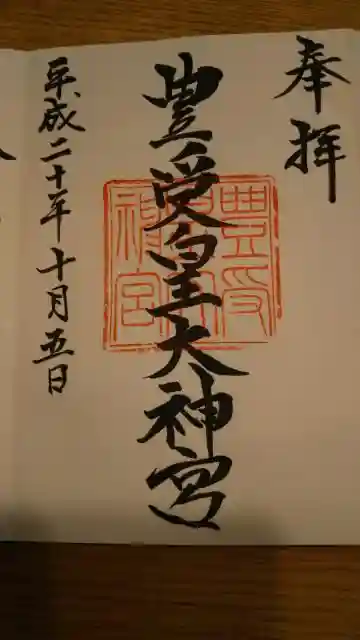 奉拝
豊受皇大神宮
平成二十年十月五日
豊受
神宮